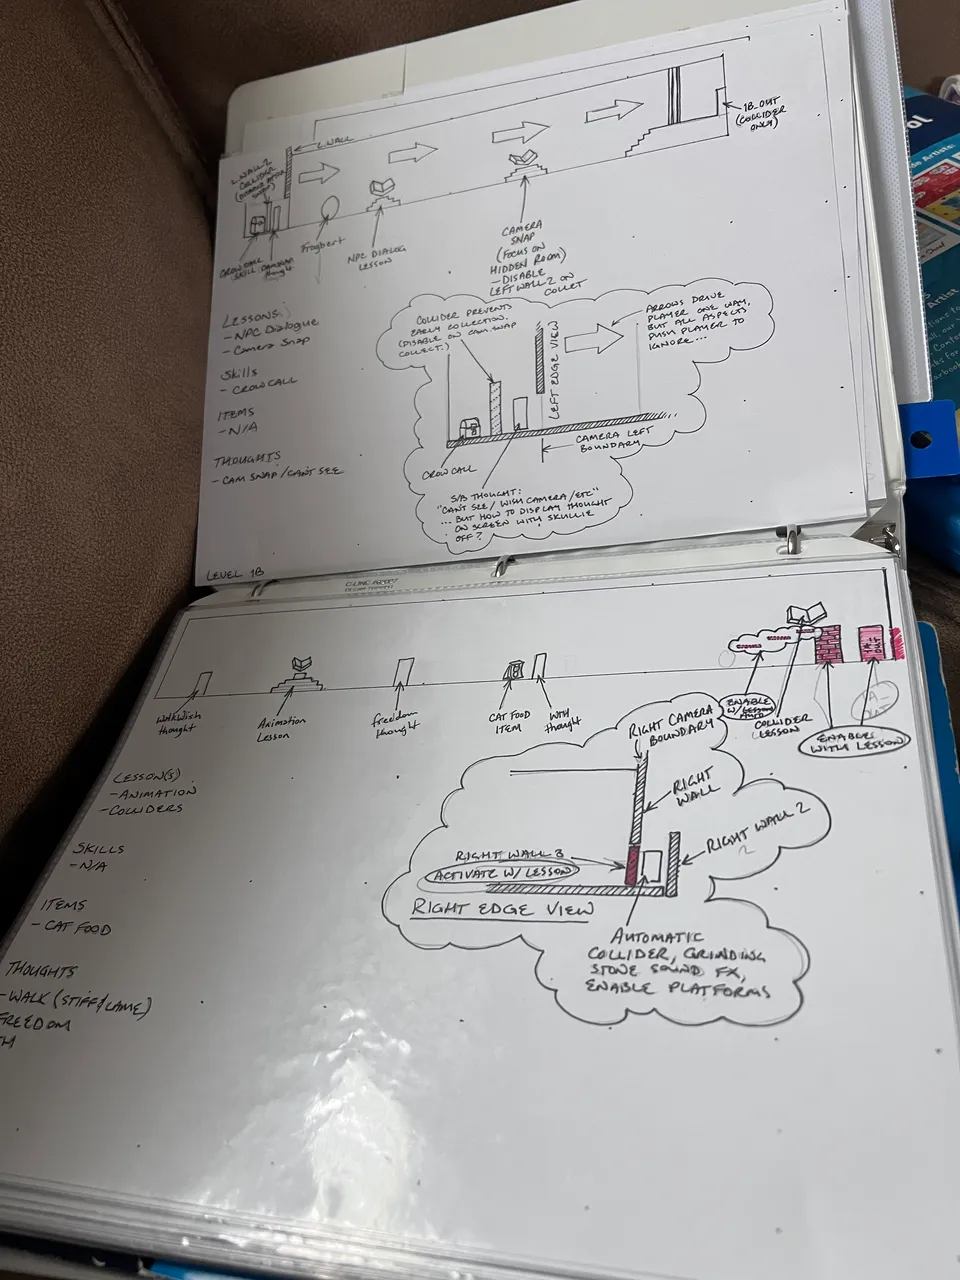 L WALL
L WALL 2
COLLIDER
1B_OUT
(COLLIDER
ONLY)
CROWCALL
SKILL
thought
Frogbert
NPC DIALOG
LESSON
CAMERA
SNAP
(FOCUS ON
HIDDEN ROOM)
- DISABLE
LEFT WALL 2 ON
COLLECT
LESSONS:
- NPC Dialogue
- Camera Snap
Skills
- CROWCALL
ITEMS
- N/A
THOUGHTS
- CAM SNAP/CAN'T SEE
COLLIDER PREVENTS
EARLY COLLECTION.
(DISABLE ON CAM SNAP
COLLECT.)
LEFT EDGE VIEW
ARROWS DRIVE
PLAYER ONE WAY,
BUT ALL ASPECTS
PUSH PLAYER TO
IGNORE...
CAMERA LEFT
BOUNDARY
CROWCALL
S/B THOUGHT:
"CAN'T SEE/ WISH CAMERA/ETC"
... BUT HOW TO DISPLAY THOUGHT
ON SCREEN WITH SKULLIE
OFF?
LEVEL 1B
walkwish
thought
Animation
Lesson
freedom
thought
CAT FOOD
ITEM
thought
ENABLE
W/ LESSON
COLLIDER
LESSON
ENABLE
WITH LESSON
OUT
LESSON(S)
- ANIMATION
- COLLIDERS
SKILLS
- N/A
ITEMS
- CAT FOOD
THOUGHTS
- WALK (STIFF/LAME)
FREEDOM
RIGHT CAMERA
BOUNDARY
RIGHT
WALL
RIGHT WALL 2
2
RIGHT WALL 3
ACTIVATE W/ LESSON
RIGHT EDGE VIEW
AUTOMATIC
COLLIDER, GRINDING
STONE SOUND FX,
ENABLE PLATFORMS